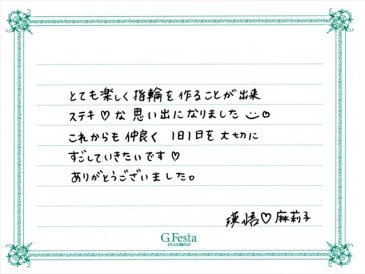 とても楽しく指輪を作ることが出来
ステキ♡な思い出になりました
これからも仲良く 1日1日を大切に
すごしていきたいです♡
ありがとうございました。
瑛悟♡麻莉子
G.Festa
DIAMOND